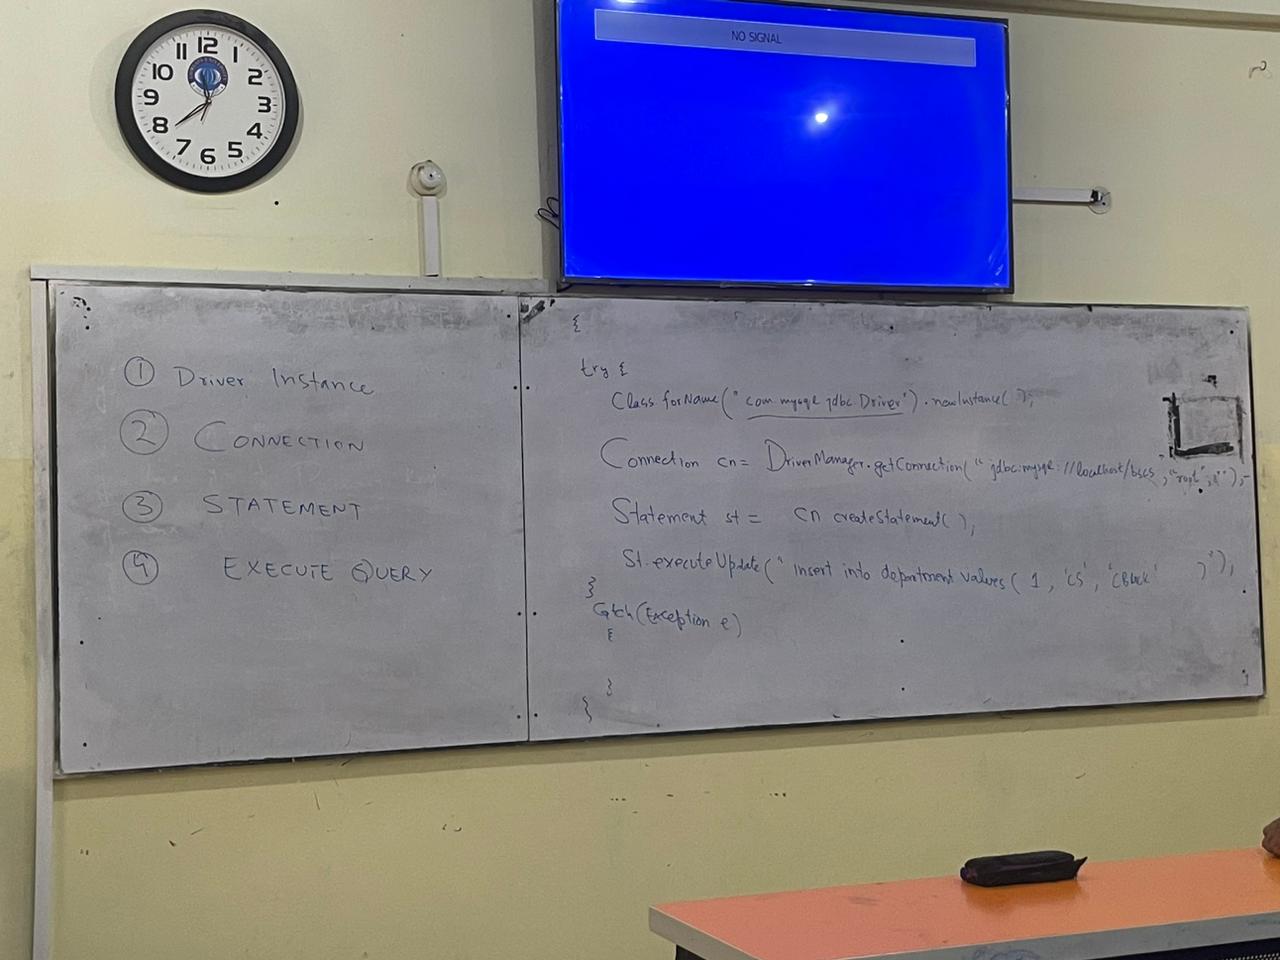 12
11 1
10 2
9 3
8 4
7 5
6
NO SIGNAL
① Driver Instance
② CONNECTION
③ STATEMENT
④ EXECUTE QUERY
{
try {
Class forName("com.mysql jdbc Driver").newInstance( );
Connection cn= DriverManager.getConnection("jdbc:mysql://localhost/bscs","root","");
Statement st = cn createStatement( );
St.executeUpdate("Insert into department values( 1, 'CS', 'CBlock' )");
}
Catch(Exception e)
{
}
}